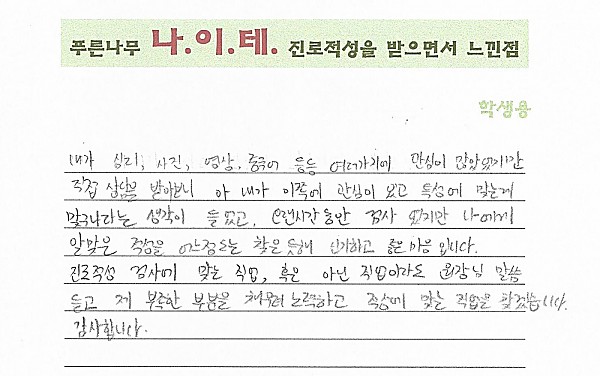 푸른나무 나.이.테. 진로적성을 받으면서 느낀점
학생용
내가 심리, 사진, 영상, 중국어 등등 여러가지에 관심이 많았었지만
직접 상담을 받아보니 아 내가 이쪽에 관심이 있고 특성에 맞는게
맞구나라는 생각이 들었고, 오랜시간동안 검사 였지만 나에게
알맞은 적성을 어느정도는 찾은 듯해 신기하고 좋은 마음 입니다.
진로적성 검사에 맞는 직업, 혹은 아닌 직업이라도 회장님 말씀
듣고 제 부족한 부분을 채우려 노력하고 적성에 맞는 직업을 찾겠습니다.
감사합니다.